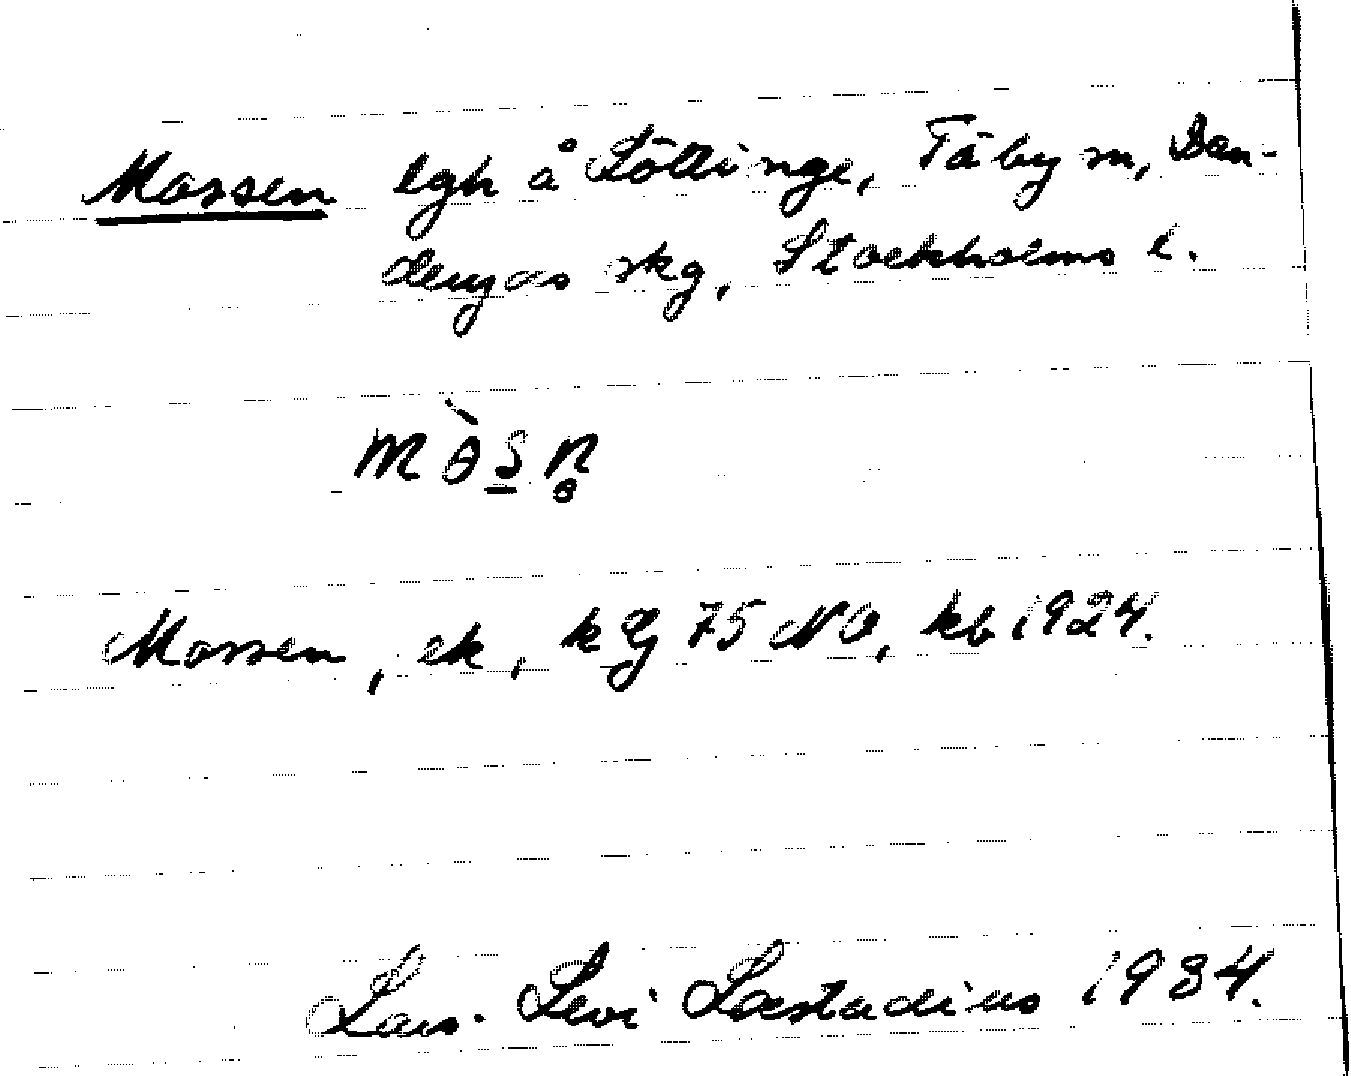 Mossen lgh å Löttinge, Täby sn, Dan-
deryds skg, Stockholms l.
mòsn̥
Mossen, ek, k Ej 75 NO, kb 1924.
Lars-Levi Læstadius 1984.